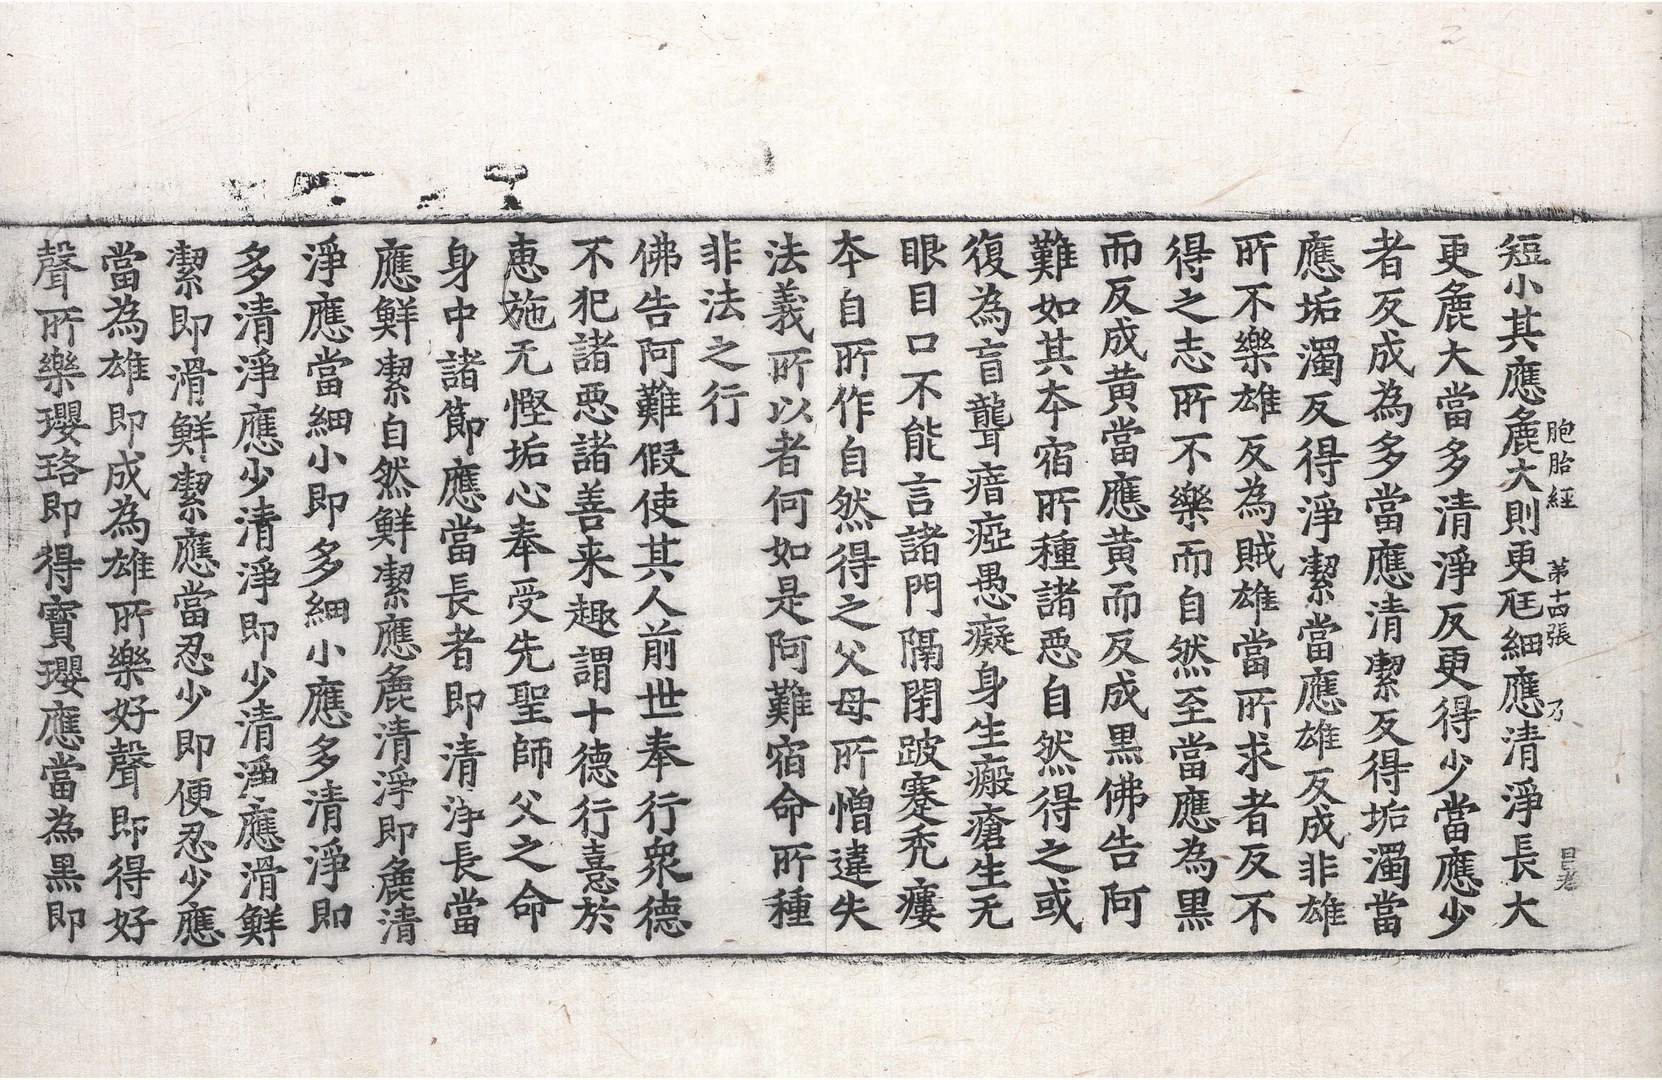 胞胎經 第十四張 乃
短小其應麁大則更尫細應清淨長大
更麁大當多清淨反更得少當應少
者反成為多當應清潔反得垢濁當
應垢濁反得淨潔當應雄反成非雄
所不樂雄反為賊雄當所求者反不
得之志所不樂而自然至當應為黑
而反成黃當應黃而反成黑佛告阿
難如其夲宿所種諸惡自然得之或
復為盲聾瘖瘂愚癡身生瘢瘡生无
眼目口不能言諸門隔閉跛蹇禿瘻
夲自所作自然得之父母所憎違失
法義所以者何如是阿難宿命所種
非法之行
佛告阿難假使其人前世奉行衆德
不犯諸惡諸善来趣謂十德行憙於
恵施无慳垢心奉受先聖師父之命
身中諸節應當長者即清淨長當
應鮮潔自然鮮潔應麁清淨即麁清
淨應當細小即多細小應多清淨即
多清淨應少清淨即少清淨應滑鮮
潔即滑鮮潔應當忍少即便忍少應
當為雄即成為雄所樂好聲即得好
聲所樂瓔珞即得寶瓔應當為黒即